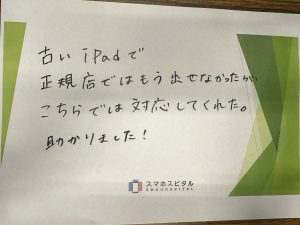 古いiPadで
正規店ではもう出せなかったが、
こちらでは対応してくれた。
助かりました!
スマホスピタル
SMAHOSPITAL